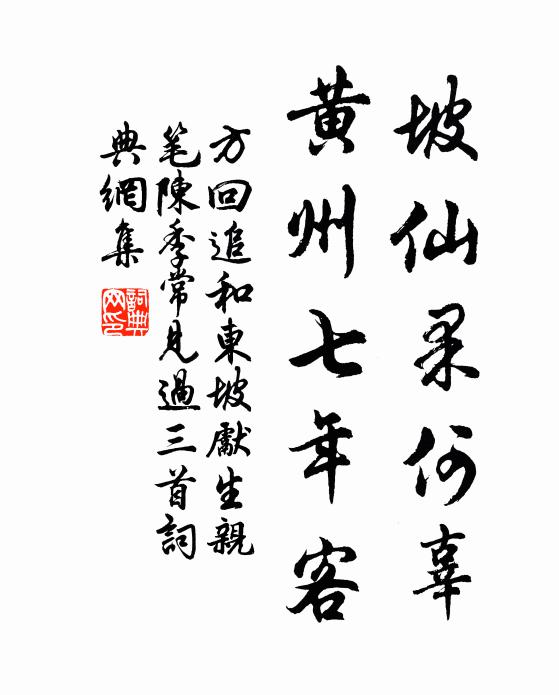 坡仙果何辜
黄州七年客
方回追和東坡獻生親
笔陳季常見過三首詞
典網集
詞典
网印